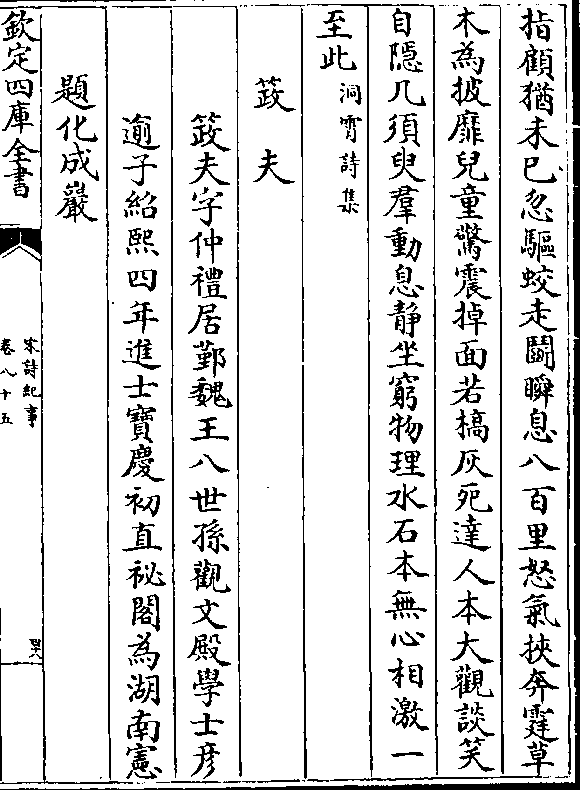 指顧猶未已忽驅蛟走鬭瞬息八百里怒氣挾奔霆草
木為披靡兒童驚震掉面若槁灰死達人本大觀談笑
自隱几須臾羣動息静坐窮物理水石本無心相激一
至此洞霄詩集
䇲夫
䇲夫字仲禮居鄞魏王八世孫觀文殿學士彦
逾子紹熙四年進士寶慶初直祕閣為湖南憲
題化成巖
欽定四庫全書
宋詩紀事
卷八十五